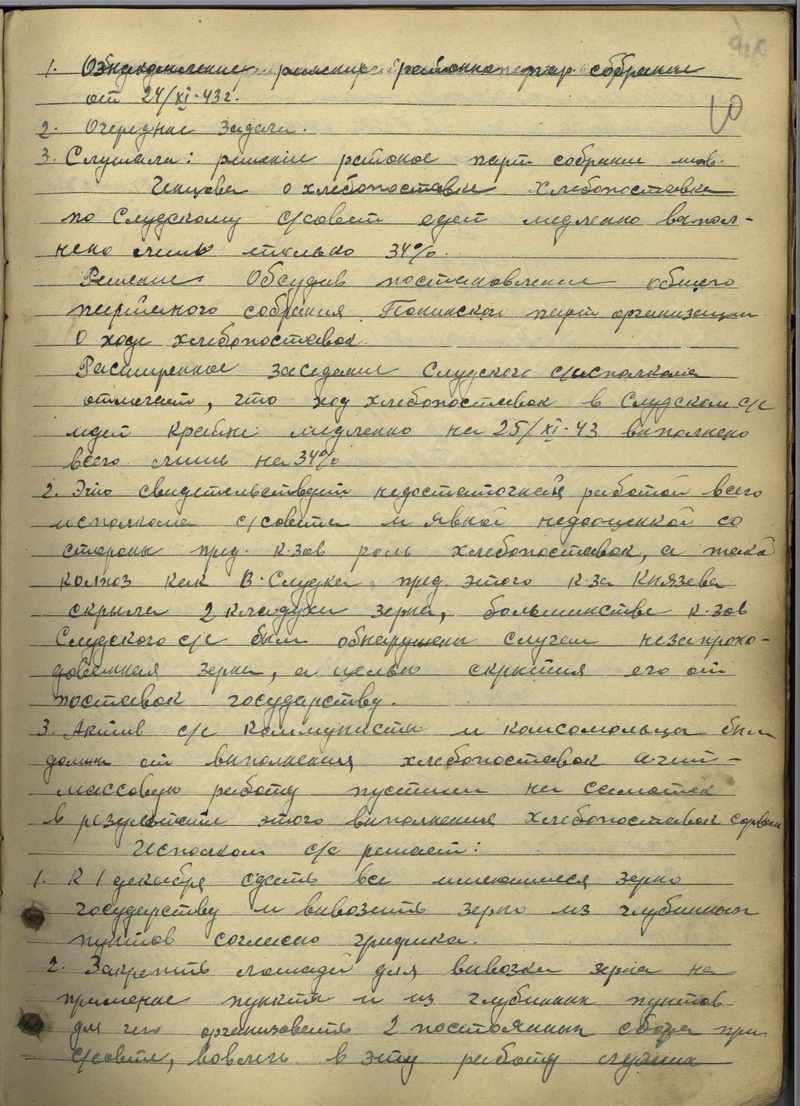 1. Ознакомление решение районного пар. собрания
от 24/XI-43г.
2. Очередные задачи.
3. Слушали: решение районное парт собрание тов.
Кенцова о хлебопоставки Хлебопоставка
по Слудскому с/совет едет медленно выпол-
нено лишь только 34%.
Решение Обсудив постановление общего
партийного собрания Понинской парт организации
О ходе хлебопоставок
Расширенное заседание Слудского с/исполкома
отмечает, что ход хлебопоставок в Слудском с/с
идет крайне медленно на 25/XI-43 выполнено
всего лишь на 34%
2. Это свидетельствует недостаточной работой всего
исполкома с/совета и явной недооценкой со
стороны пред. к-зов роль хлебопоставок, а такой
колхоз как В-Слудка пред. этого к-за Князева
скрыла 2 кладухи зерна, большинстве к-зов
Слудского с/с были обнаружены случаи незаприхо-
дованная зерна, а целью скрытия его от
поставок государству.
3. Актив с/с коммунисты и комсомольцы были
далеки от выполнения хлебопоставок агит-
массовую работу пустили на самотек
в результате этого выполнения хлебопоставок сорваны
Исполком с/с решает:
1. К 1 декабря сдать все имеющиеся зерно
государству и вывозить зерно из глубинных
пунктов согласно графика.
2. Закрепить лошадей для вывозки зерна на
приемные пункты и из глубинных пунктов
для чего организовать 2 постоянных обоза при
с/совете, вовлечь в эту работу